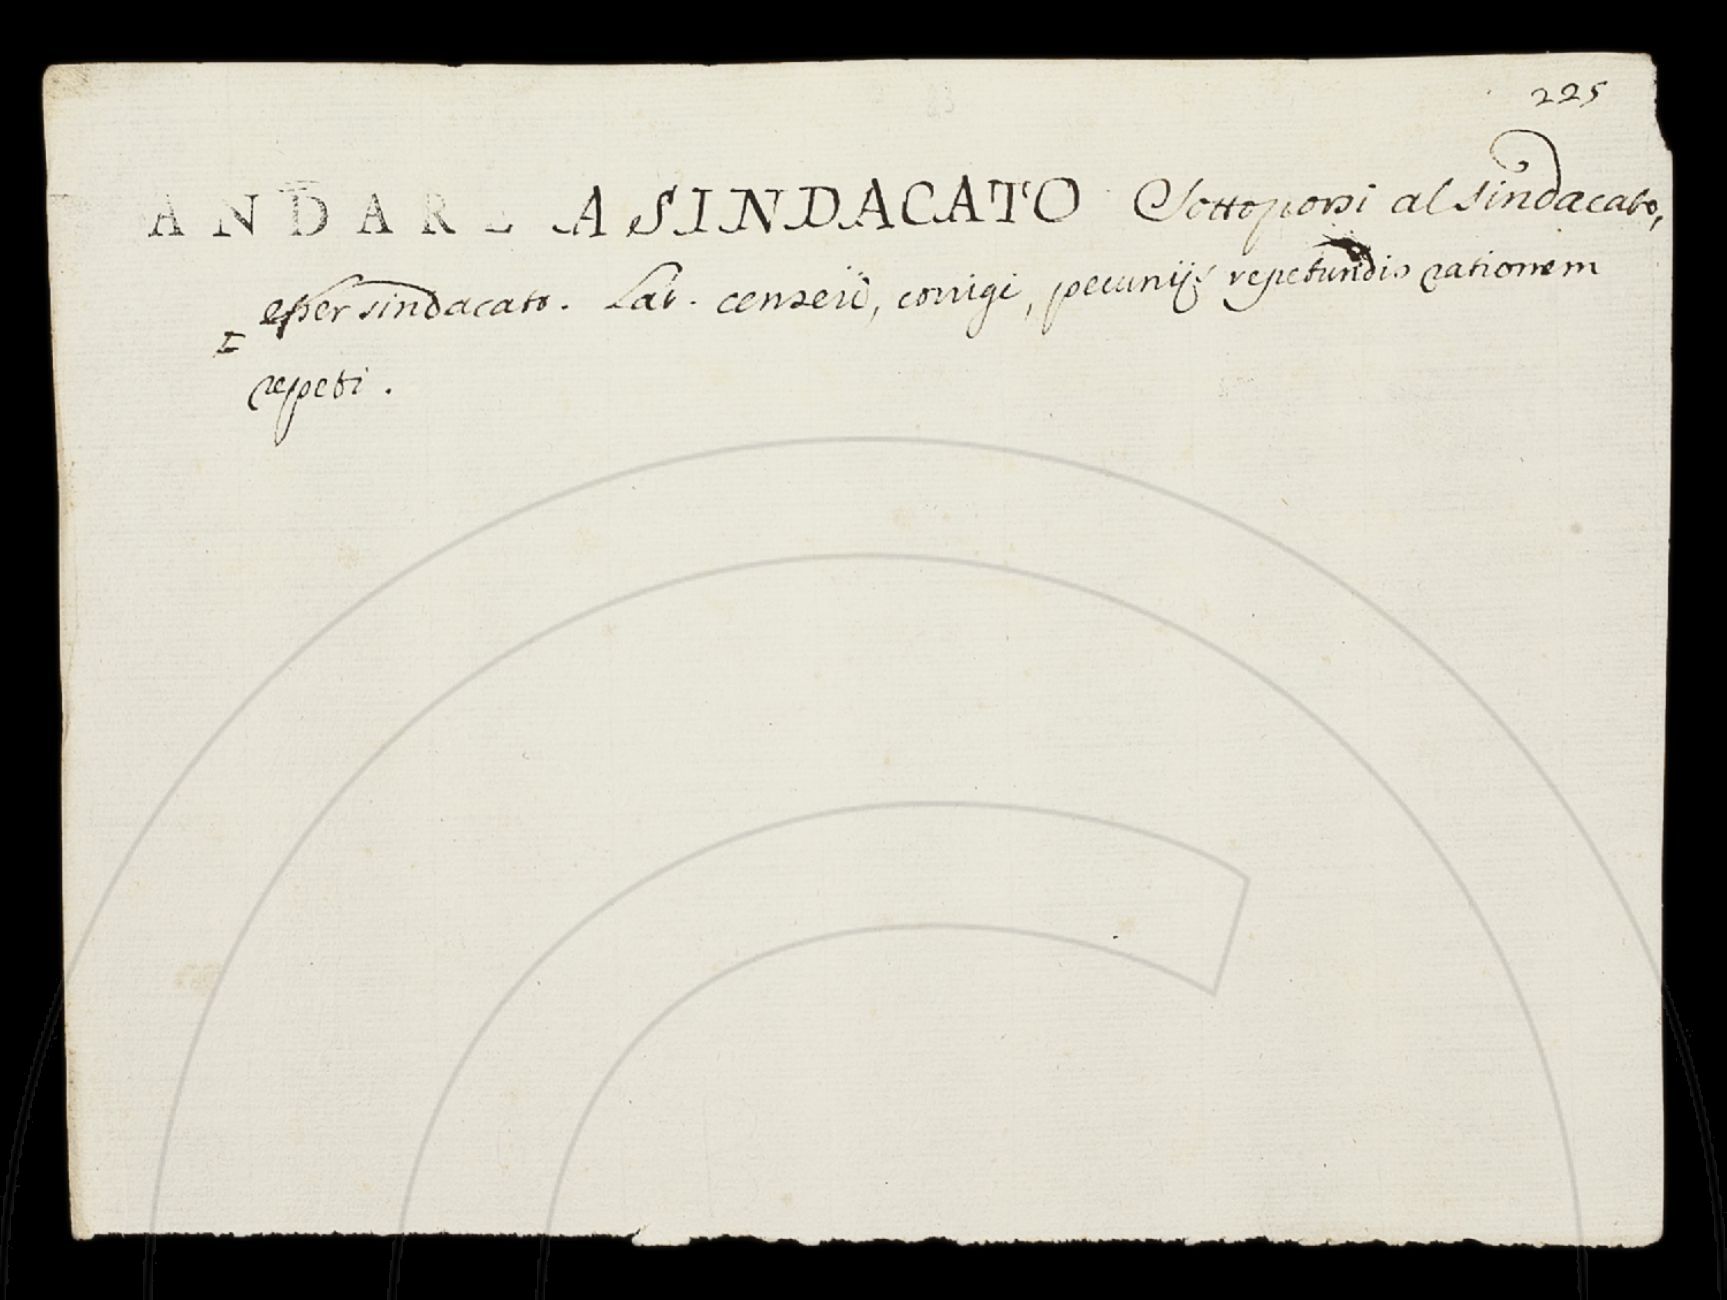 225
ANDARE A SINDACATO Sottoporsi al sindacato,
esser sindacato. Lat. censeri, corrigi, pecunijs repetundis rationem
repeti.